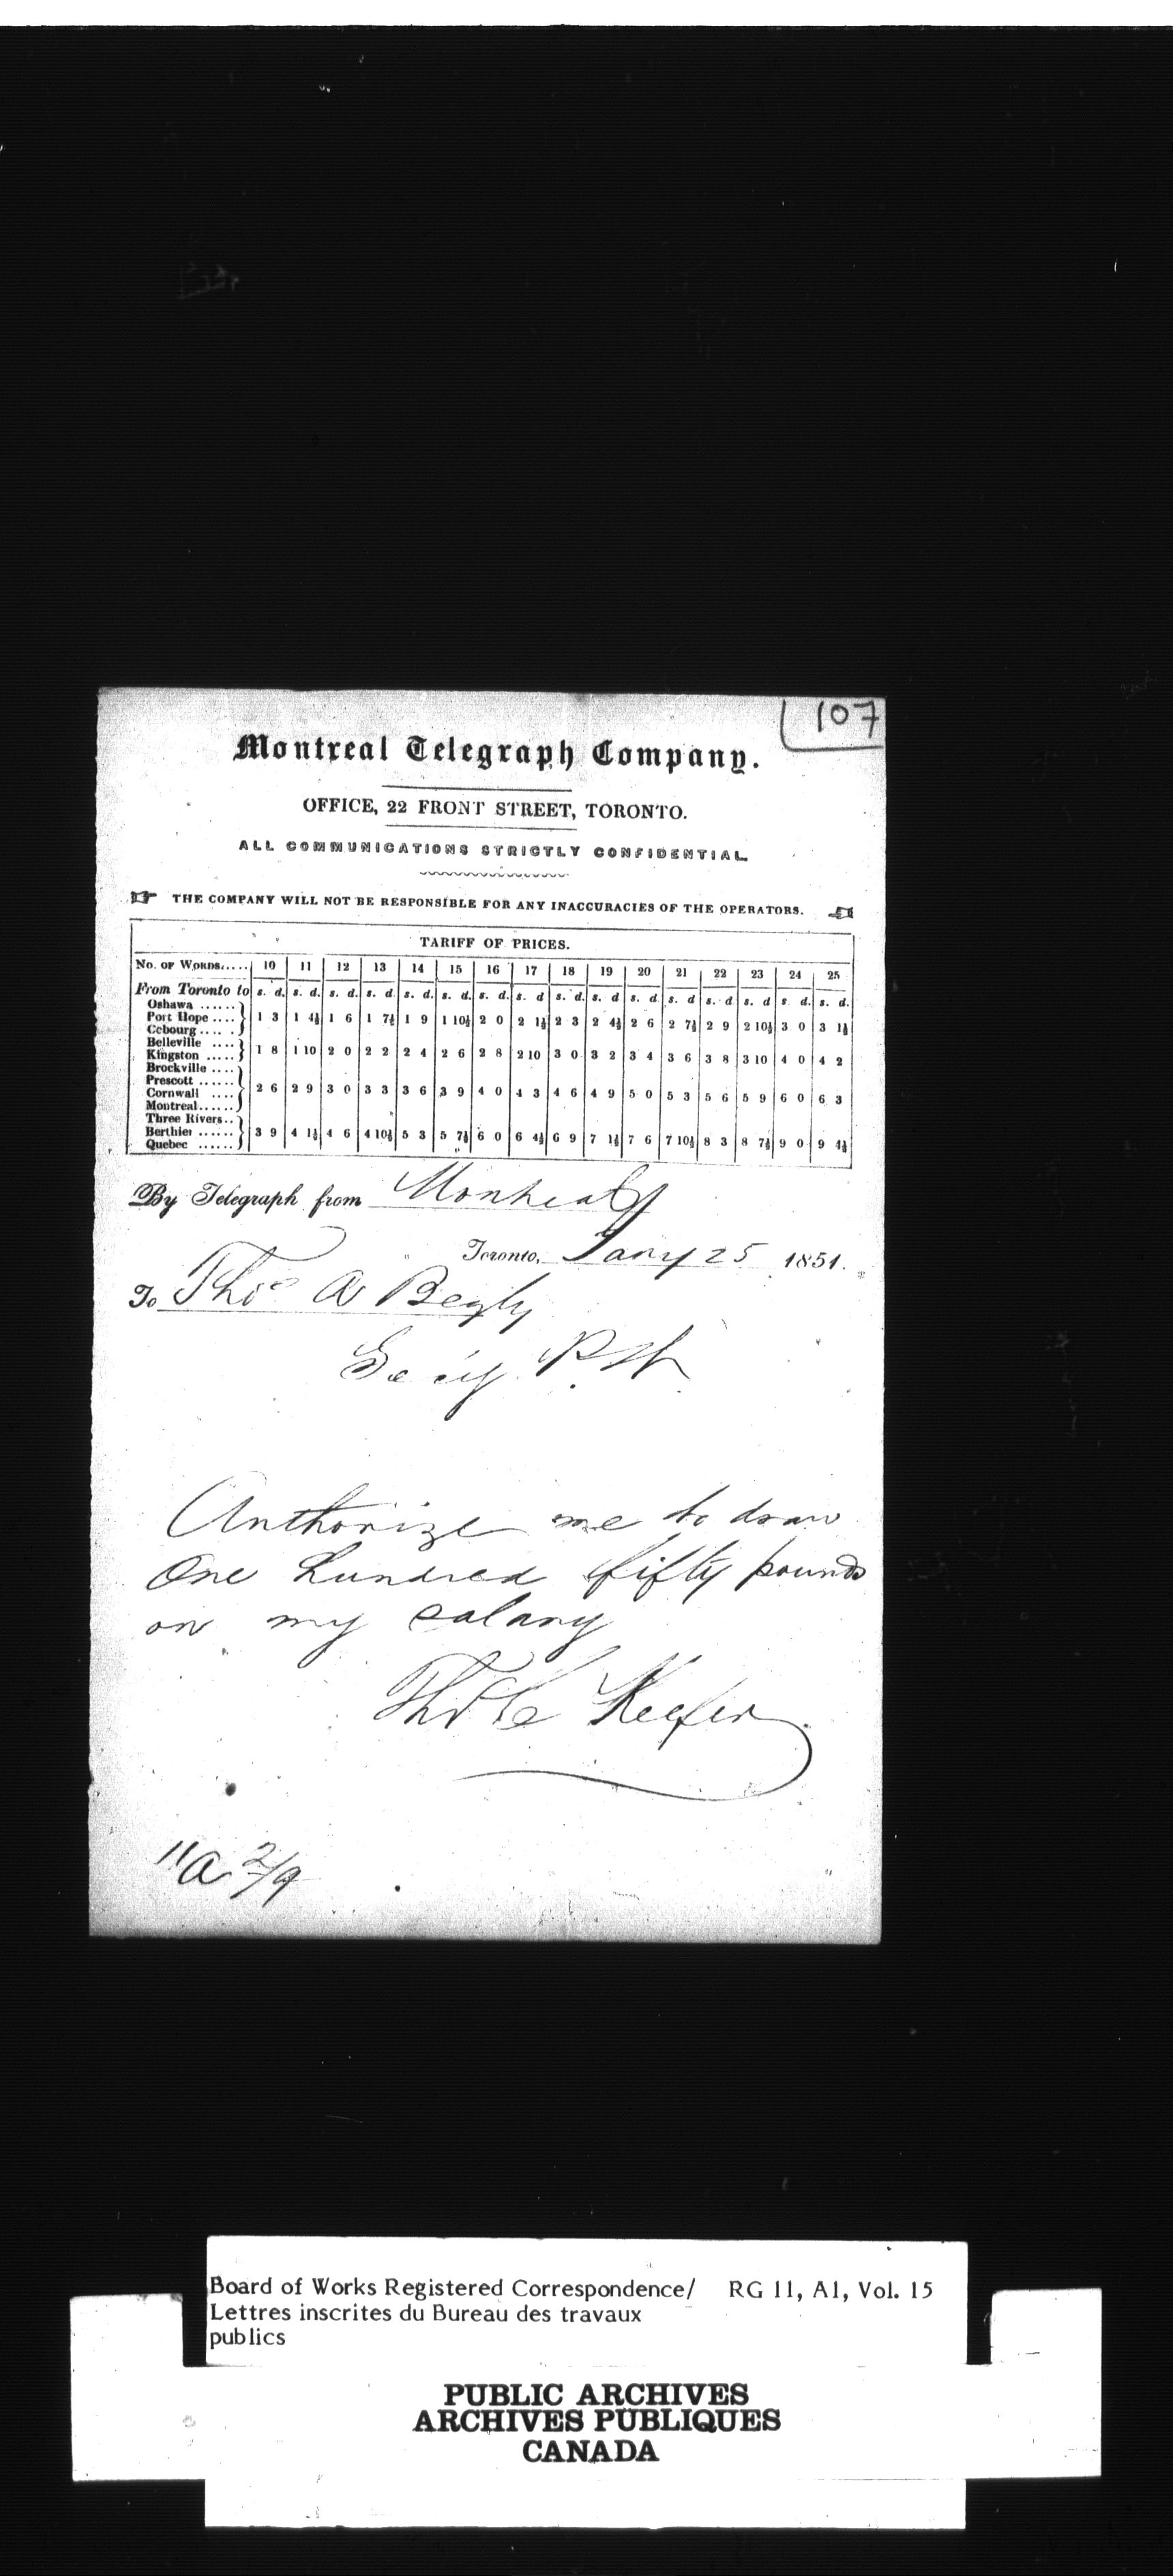 107
Montreal Telegraph Company.
OFFICE, 22 FRONT STREET, TORONTO.
ALL COMMUNICATIONS STRICTLY CONFIDENTIAL.
THE COMPANY WILL NOT BE RESPONSIBLE FOR ANY INACCURACIES OF THE OPERATORS.
TARIFF OF PRICES.
No. of Words..... 10 11 12 13 14 15 16 17 18 19 20 21 22 23 24 25
From Toronto to s. d. s. d. s. d. s. d. s. d. s. d. s. d. s. d s. d. s. d s. d s. d s. d s. d s d. s. d.
Oshawa ......
Port Hope .... 1 3 1 4½ 1 6 1 7½ 1 9 1 10½ 2 0 2 1½ 2 3 2 4½ 2 6 2 7½ 2 9 2 10½ 3 0 3 1½
Cobourg .....
Belleville ....
Kingston ..... 1 8 1 10 2 0 2 2 2 4 2 6 2 8 2 10 3 0 3 2 3 4 3 6 3 8 3 10 4 0 4 2
Brockville ....
Prescott ......
Cornwall .... 2 6 2 9 3 0 3 3 3 6 3 9 4 0 4 3 4 6 4 9 5 0 5 3 5 6 5 9 6 0 6 3
Montreal......
Three Rivers..
Berthier ...... 3 9 4 1½ 4 6 4 10½ 5 3 5 7½ 6 0 6 4½ 6 9 7 1½ 7 6 7 10½ 8 3 8 7½ 9 0 9 4½
Quebec ......
By Telegraph from Montreal
Toronto, Jany 25 1851.
To Thos A Begly
Secy P. W
Authorize me to draw
One hundred fifty pounds
on my salary
Thos C Keefer
11a 2/9
Board of Works Registered Correspondence/ RG 11, A1, Vol. 15
Lettres inscrites du Bureau des travaux
publics
PUBLIC ARCHIVES
ARCHIVES PUBLIQUES
CANADA